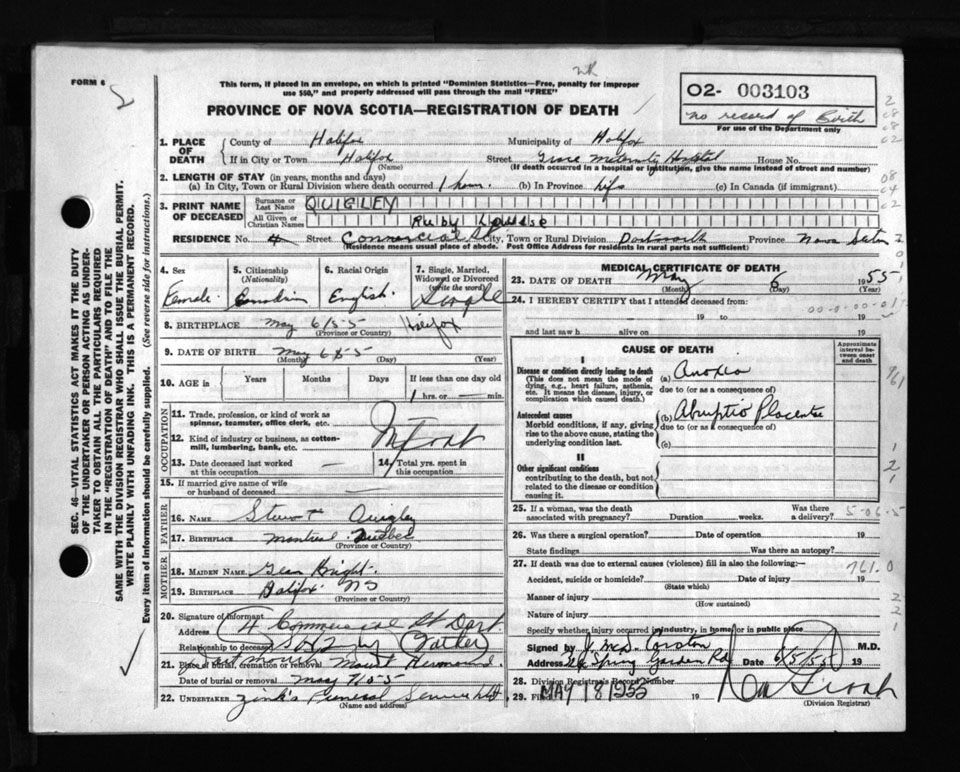 FORM 6
This form, if placed in an envelope, on which is printed "Dominion Statistics—Free, penalty for improper
use $50," and properly addressed will pass through the mail "FREE"
PROVINCE OF NOVA SCOTIA—REGISTRATION OF DEATH
02- 003103
no record of Birth
For use of the Department only
SEC. 46—VITAL STATISTICS ACT MAKES IT THE DUTY
OF THE UNDERTAKER OR PERSON ACTING AS UNDER-
TAKER TO OBTAIN ALL THE PARTICULARS REQUIRED
IN THE "REGISTRATION OF DEATH" AND TO FILE THE
SAME WITH THE DIVISION REGISTRAR WHO SHALL ISSUE THE BURIAL PERMIT.
WRITE PLAINLY WITH UNFADING INK. THIS IS A PERMANENT RECORD.
Every item of information should be carefully supplied. (See reverse side for instructions.)
1. PLACE OF DEATH
County of Halifax Municipality of Halifax
If in City or Town Halifax Street Grace Maternity Hospital House No.
(Name) (If death occurred in a hospital or institution, give the name instead of street and number)
2. LENGTH OF STAY (in years, months and days)
(a) In City, Town or Rural Division where death occurred 1 hour. (b) In Province life (c) In Canada (if immigrant)
3. PRINT NAME OF DECEASED
Surname or Last Name QUIGLEY
All Given or Christian Names Ruby Louise
RESIDENCE No. 4 Street Commercial St City, Town or Rural Division Dartmouth Province Nova Scotia
(Residence means usual place of abode. Post Office Address for residents in rural parts not sufficient)
4. Sex
Female
5. Citizenship
(Nationality)
Canadian
6. Racial Origin
English.
7. Single, Married,
Widowed or Divorced
(write the word)
Single
8. BIRTHPLACE May 6/55 Halifax
(Province or Country)
9. DATE OF BIRTH May 6 55
(Month) (Day) (Year)
10. AGE in
Years Months Days If less than one day old
1 hrs. or — min.
OCCUPATION
11. Trade, profession, or kind of work as
spinner, teamster, office clerk, etc.
12. Kind of industry or business, as cotton-
mill, lumbering, bank, etc.
Infant
13. Date deceased last worked
at this occupation —
14. Total yrs. spent in
this occupation
15. If married give name of wife
or husband of deceased —
FATHER
16. NAME Stewart Quigley
17. BIRTHPLACE Montreal Quebec
(Province or Country)
MOTHER
18. MAIDEN NAME Jean Knight.
19. BIRTHPLACE Halifax NS
(Province or Country)
20. Signature of informant
Address 4 Commercial St Dart
Relationship to deceased (Father)
21. Place of burial, cremation or removal Dartmouth Mount Hermond.
Date of burial or removal May 7/55
22. UNDERTAKER Zink's Funeral Service Ltd.
(Name and address)
MEDICAL CERTIFICATE OF DEATH
23. DATE OF DEATH May 6 1955
(Month) (Day)
24. I HEREBY CERTIFY that I attended deceased from:
19 to 19
and last saw h alive on 19
CAUSE OF DEATH
Approximate
interval be-
tween onset
and death
I
Disease or condition directly leading to death
(This does not mean the mode of
dying, e.g., heart failure, asthenia,
etc. It means the disease, injury, or
complication which caused death.)
(a) Anoxia
due to (or as a consequence of)
Antecedent causes
Morbid conditions, if any, giving
rise to the above cause, stating the
underlying condition last.
(b) Abruptio Placentae
due to (or as a consequence of)
(c)
II
Other significant conditions
contributing to the death, but not
related to the disease or condition
causing it.
25. If a woman, was the death
associated with pregnancy? Duration weeks. Was there
a delivery?
5-06.5
26. Was there a surgical operation? Date of operation 19
State findings Was there an autopsy?
27. If death was due to external causes (violence) fill in also the following:—
761.0
Accident, suicide or homicide? Date of injury 19
(State which)
Manner of injury
(How sustained)
Nature of injury
Specify whether injury occurred in industry, in home or in public place
Signed by J. McD. Corston M.D.
Address Spring Garden Rd Date 6/5/55 19
28. Division Registrar's Record Number
29. Filed MAY 18 1955 19
(Division Registrar)